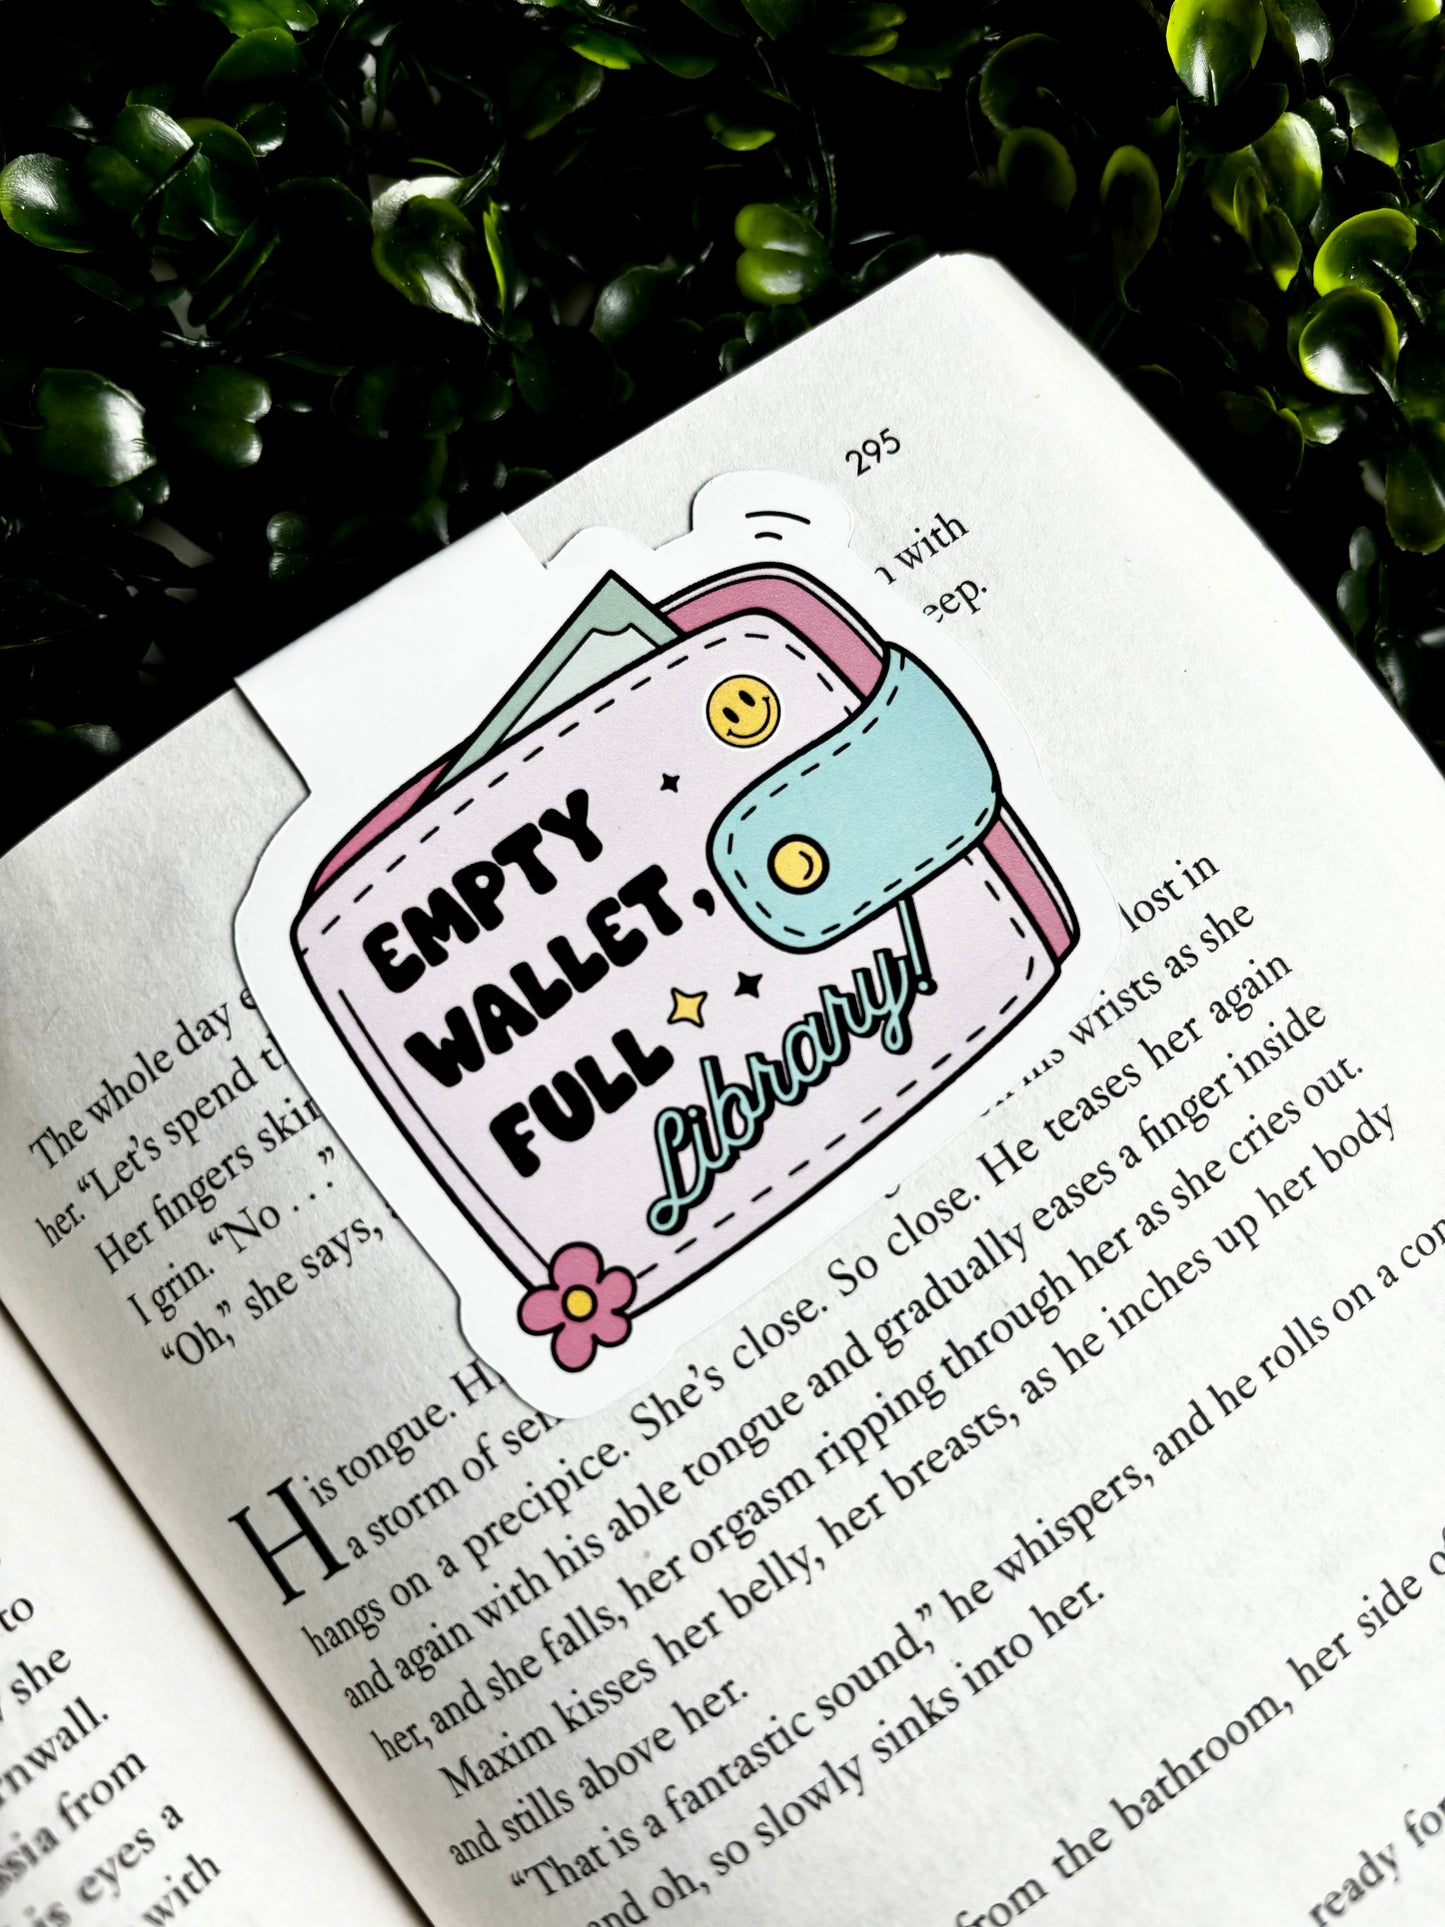 295
with
eep.
EMPTY
WALLET,
FULL
Library!
The whole day
her. “Let’s spend
Her fingers
I grin. “No . . .”
“Oh,” she says,
lost in
his wrists as she
His tongue.
a storm of
hangs on a precipice. She’s close. So close. He teases her again
and again with his able tongue and gradually eases a finger inside
her, and she falls, her orgasm ripping through her as she cries out.
Maxim kisses her belly, her breasts, as he inches up her body
and stills above her.
“That is a fantastic sound,” he whispers, and he rolls on a
and oh, so slowly sinks into her.
from the bathroom, her side
ready
to
she
rnwall.
from
eyes a
with